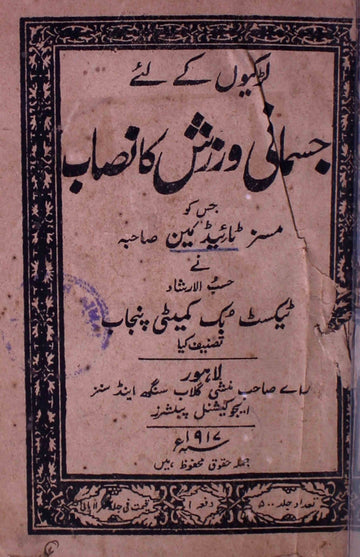 لڑکیوں کے لئے
جسمانی ورزش کا نصاب
جس کو
مسز ٹائیڈیمین صاحبہ
نے
حسب الارشاد
ٹیکسٹ بک کمیٹی پنجاب
تصنیف کیا
لاہور
رائے صاحب منشی گلاب سنگھ اینڈ سنز
ایجوکیشنل پبلشرز
۱۹۱۷ء
جملہ حقوق محفوظ ہیں
تعداد جلد ۵۰۰
دفعہ ۱
قیمت فی جلد